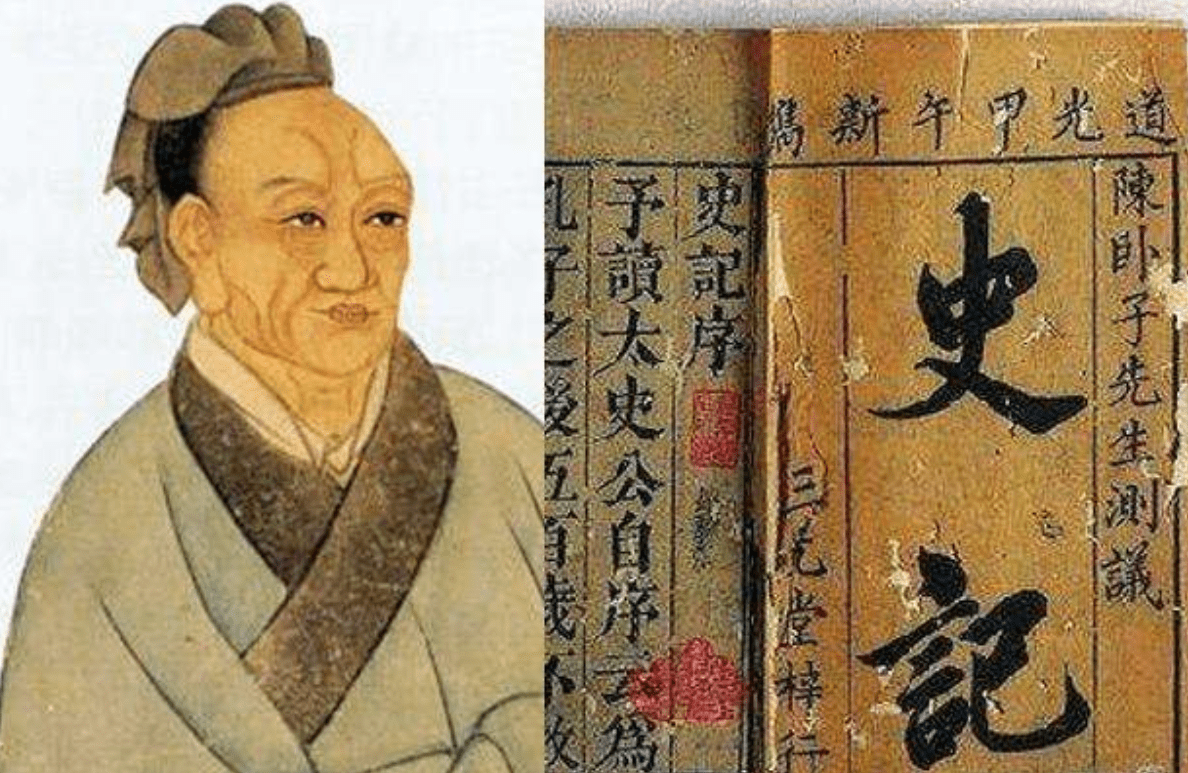 道光甲午新鐫
陳卧子先生測議
史記
三元堂梓行
史記序
予讀太史公自序云爲
孔子之後五百歲不敢